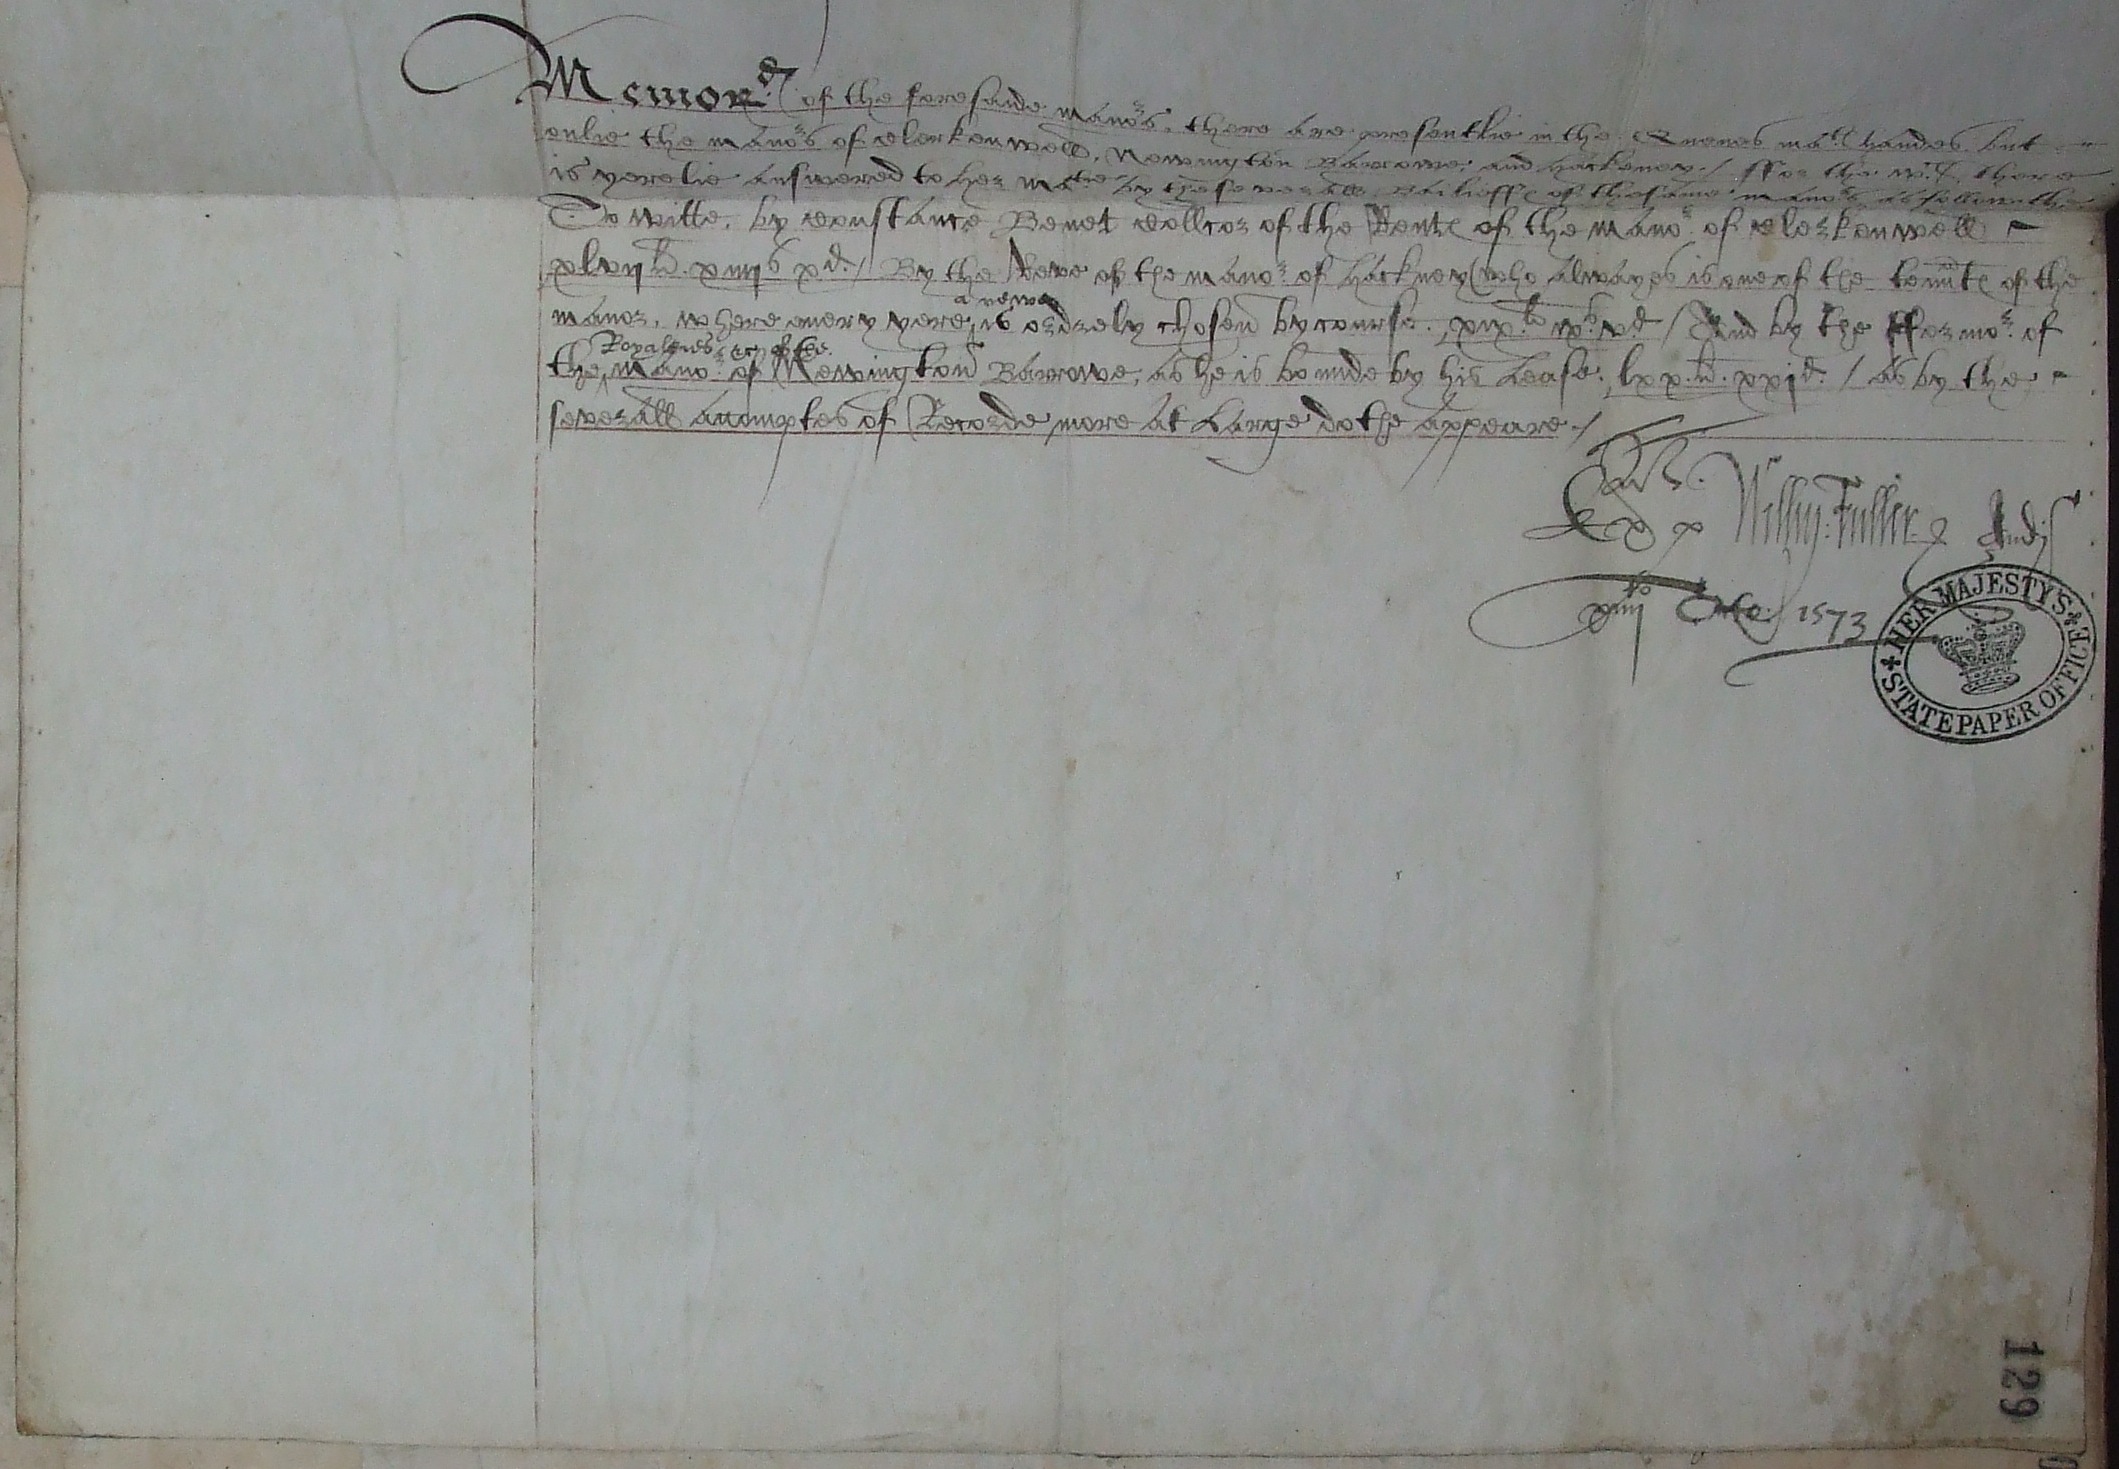 Memord. of the foresaide manors, there are presentlie in the Quenes mate handes but
onlie the manors of Clerkenwell, Newington Barrowe, and Hackeney./ ffor the wch, there
is yerelie answered to her Matie by the severall Bailieffe of the same manors, as followeth
To witte, by Constance Benet Collcor of the Rente of the manor of Clerkenwell
xlvijli. xiiijs xd./ By the Reve of the manor of Hackney (who alwayes is one of the tennte of the
manor, where every yere, a newe is orderly chosen by course. xixli. vs. vd / And by the ffermor. of
the Royalties &c of the Manor. of Newington Barrowe, as he is bounde by his Lease, lxx.li. xxjd. / as by the
severall accomptes of Recorde more at Large dothe appeare./
Exr. p Willm: Fuller Audit
xiiijto 1573
HER MAJESTY'S STATE PAPER OFFICE
129